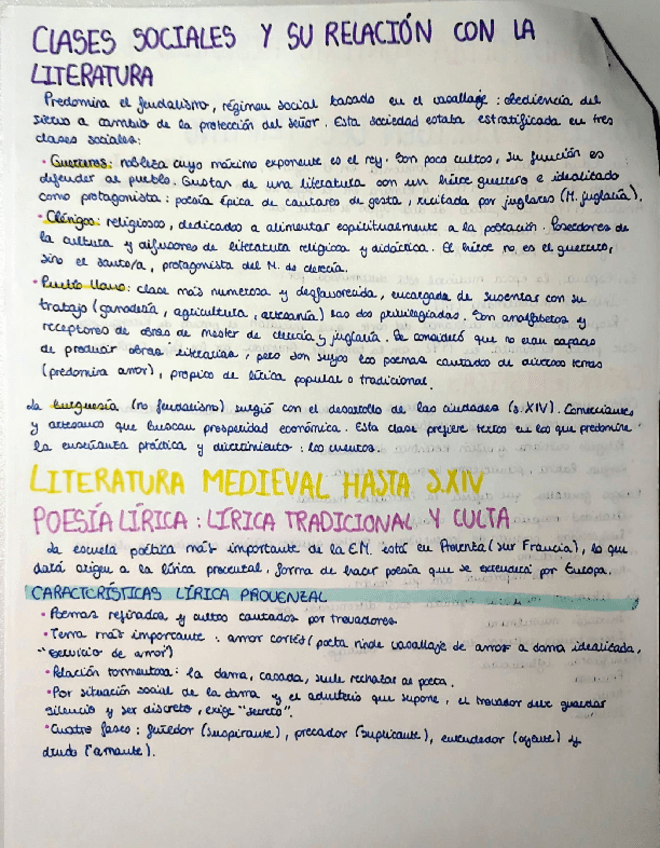 CLASES SOCIALES Y SU RELACIÓN CON LA
LITERATURA
Predomina el feudalismo, régimen social basado en el vasallaje : obediencia del
siervo a cambio de la protección del señor. Esta sociedad estaba estratificada en tres
clases sociales:
• Guerreros: nobleza cuyo máximo exponente es el rey. Son poco cultos, su función es
defender al pueblo. Gustan de una literatura con un héroe guerrero e idealizado
como protagonista : poesía épica de cantares de gesta, recitada por juglares (M. juglaría).
• Clérigos: religiosos, dedicados a alimentar espiritualmente a la población. Poseedores de
la cultura y difusores de literatura religiosa y didáctica. El héroe no es el guerrero,
sino el santo/a, protagonista del M. de clerecía.
• Pueblo llano: clase más numerosa y desfavorecida, encargada de sustentar con su
trabajo (ganadería, agricultura, artesanía) las dos privilegiadas. Son analfabetos y
receptores de obras de mester de clerecía y juglaría. Se consideró que no eran capaces
de producir obras literarias, pero son suyos los poemas cantados de diversos temas
(predomina amor), propios de lírica popular o tradicional.
La burguesía (no feudalismo) surgió con el desarrollo de las ciudades (s. XIV). Comerciantes
y artesanos que buscan prosperidad económica. Esta clase prefiere textos en los que predomine
la enseñanza práctica y divertimiento : los cuentos.
LITERATURA MEDIEVAL HASTA S.XIV
POESÍA LÍRICA : LÍRICA TRADICIONAL Y CULTA
La escuela poética más importante de la E.M. está en Provenza (sur Francia), lo que
dará origen a la lírica provenzal, forma de hacer poesía que se extenderá por Europa.
CARACTERÍSTICAS LÍRICA PROVENZAL
• Poemas refinados y cultos cantados por trovadores
• Tema más importante : amor cortés (poeta rinde vasallaje de amor a dama idealizada,
"servicio de amor")
• Relación tormentosa : la dama, casada, suele rechazar al poeta.
• Por situación social de la dama y el adulterio que supone, el trovador debe guardar
silencio y ser discreto, exige "secreto".
• Cuatro fases : feñedor (suspirante), precador (suplicante), entendedor (oyente) y
drudo (amante).